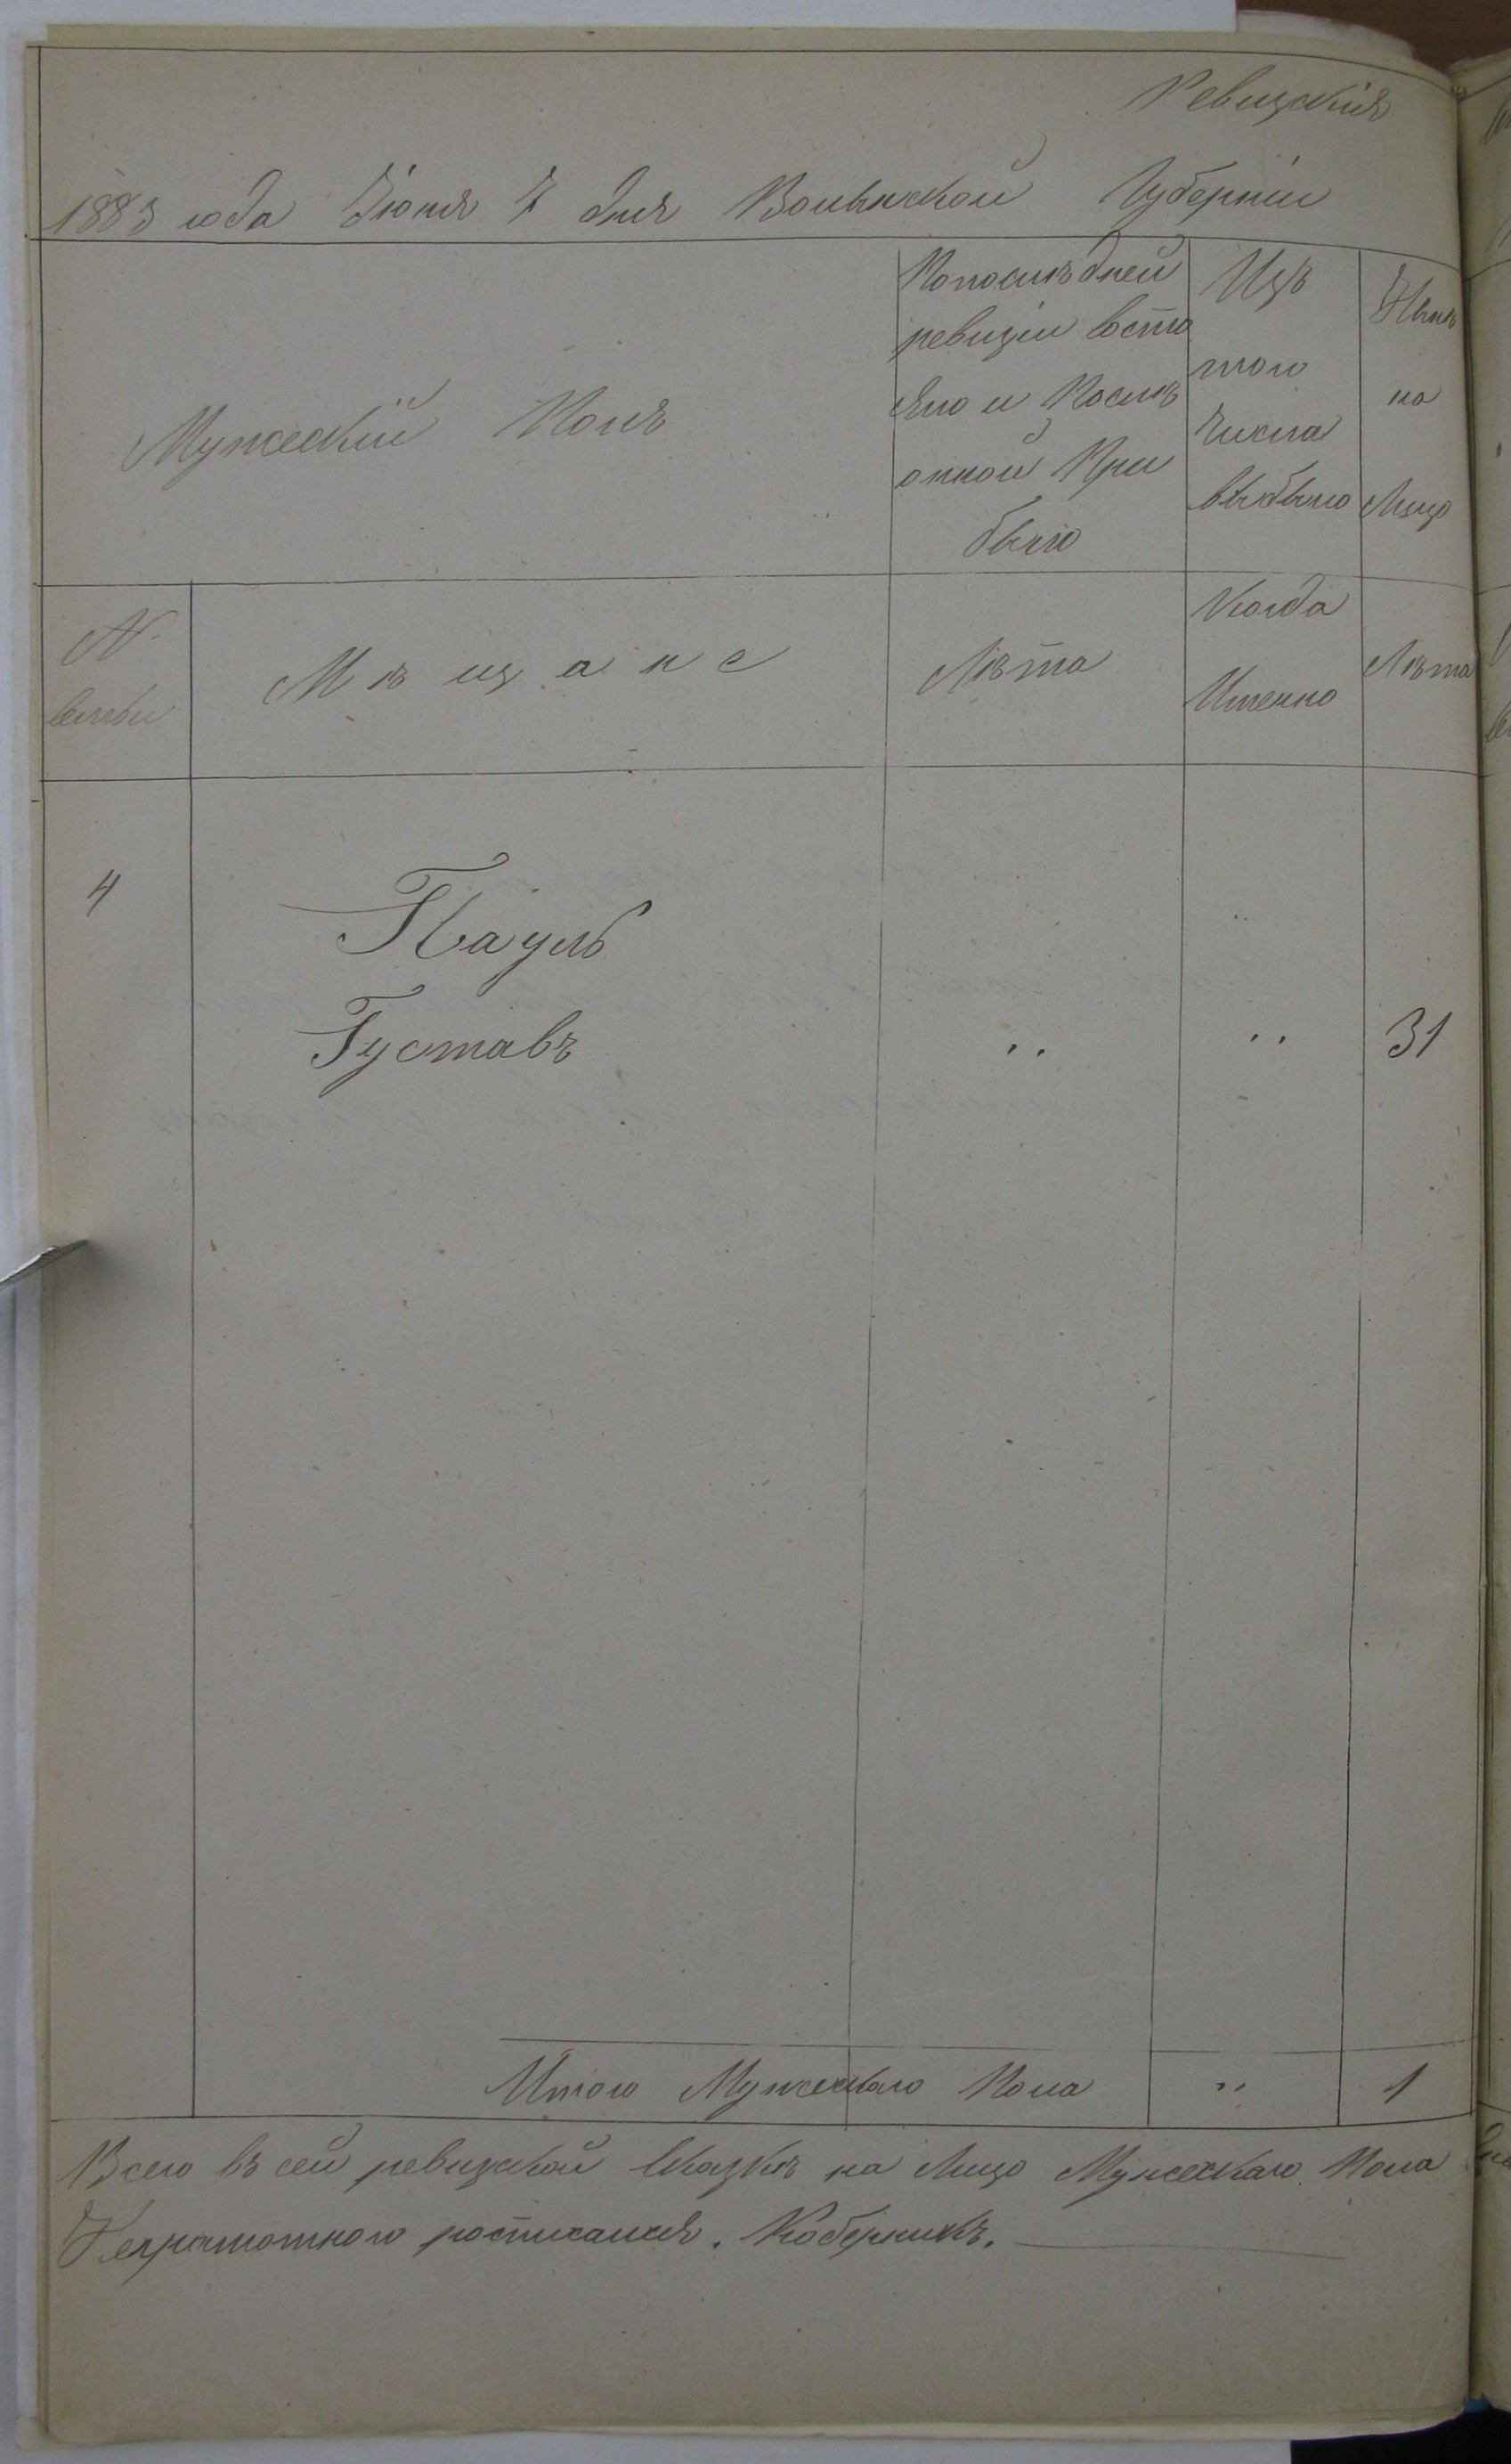 Ревизскія
1883 года Іюня 7 дня Волынской Губерніи
Мужескій Полъ
Попослѣдней
ревизіи восто
яло и Послѣ
онной При
было
Изъ
того
Числа
выбыло
Нынѣ
на
Лицо
№
семьи
Мѣщане
Лѣта
Когда
Именно
Лѣта
4
Пауль
Густавъ " " 31
Итого Мужескаго Пола " 1
Всего въ сей ревизской Сказкѣ на Лицо Мужескаго Пола
Неграмотного росписался. Коберникъ.